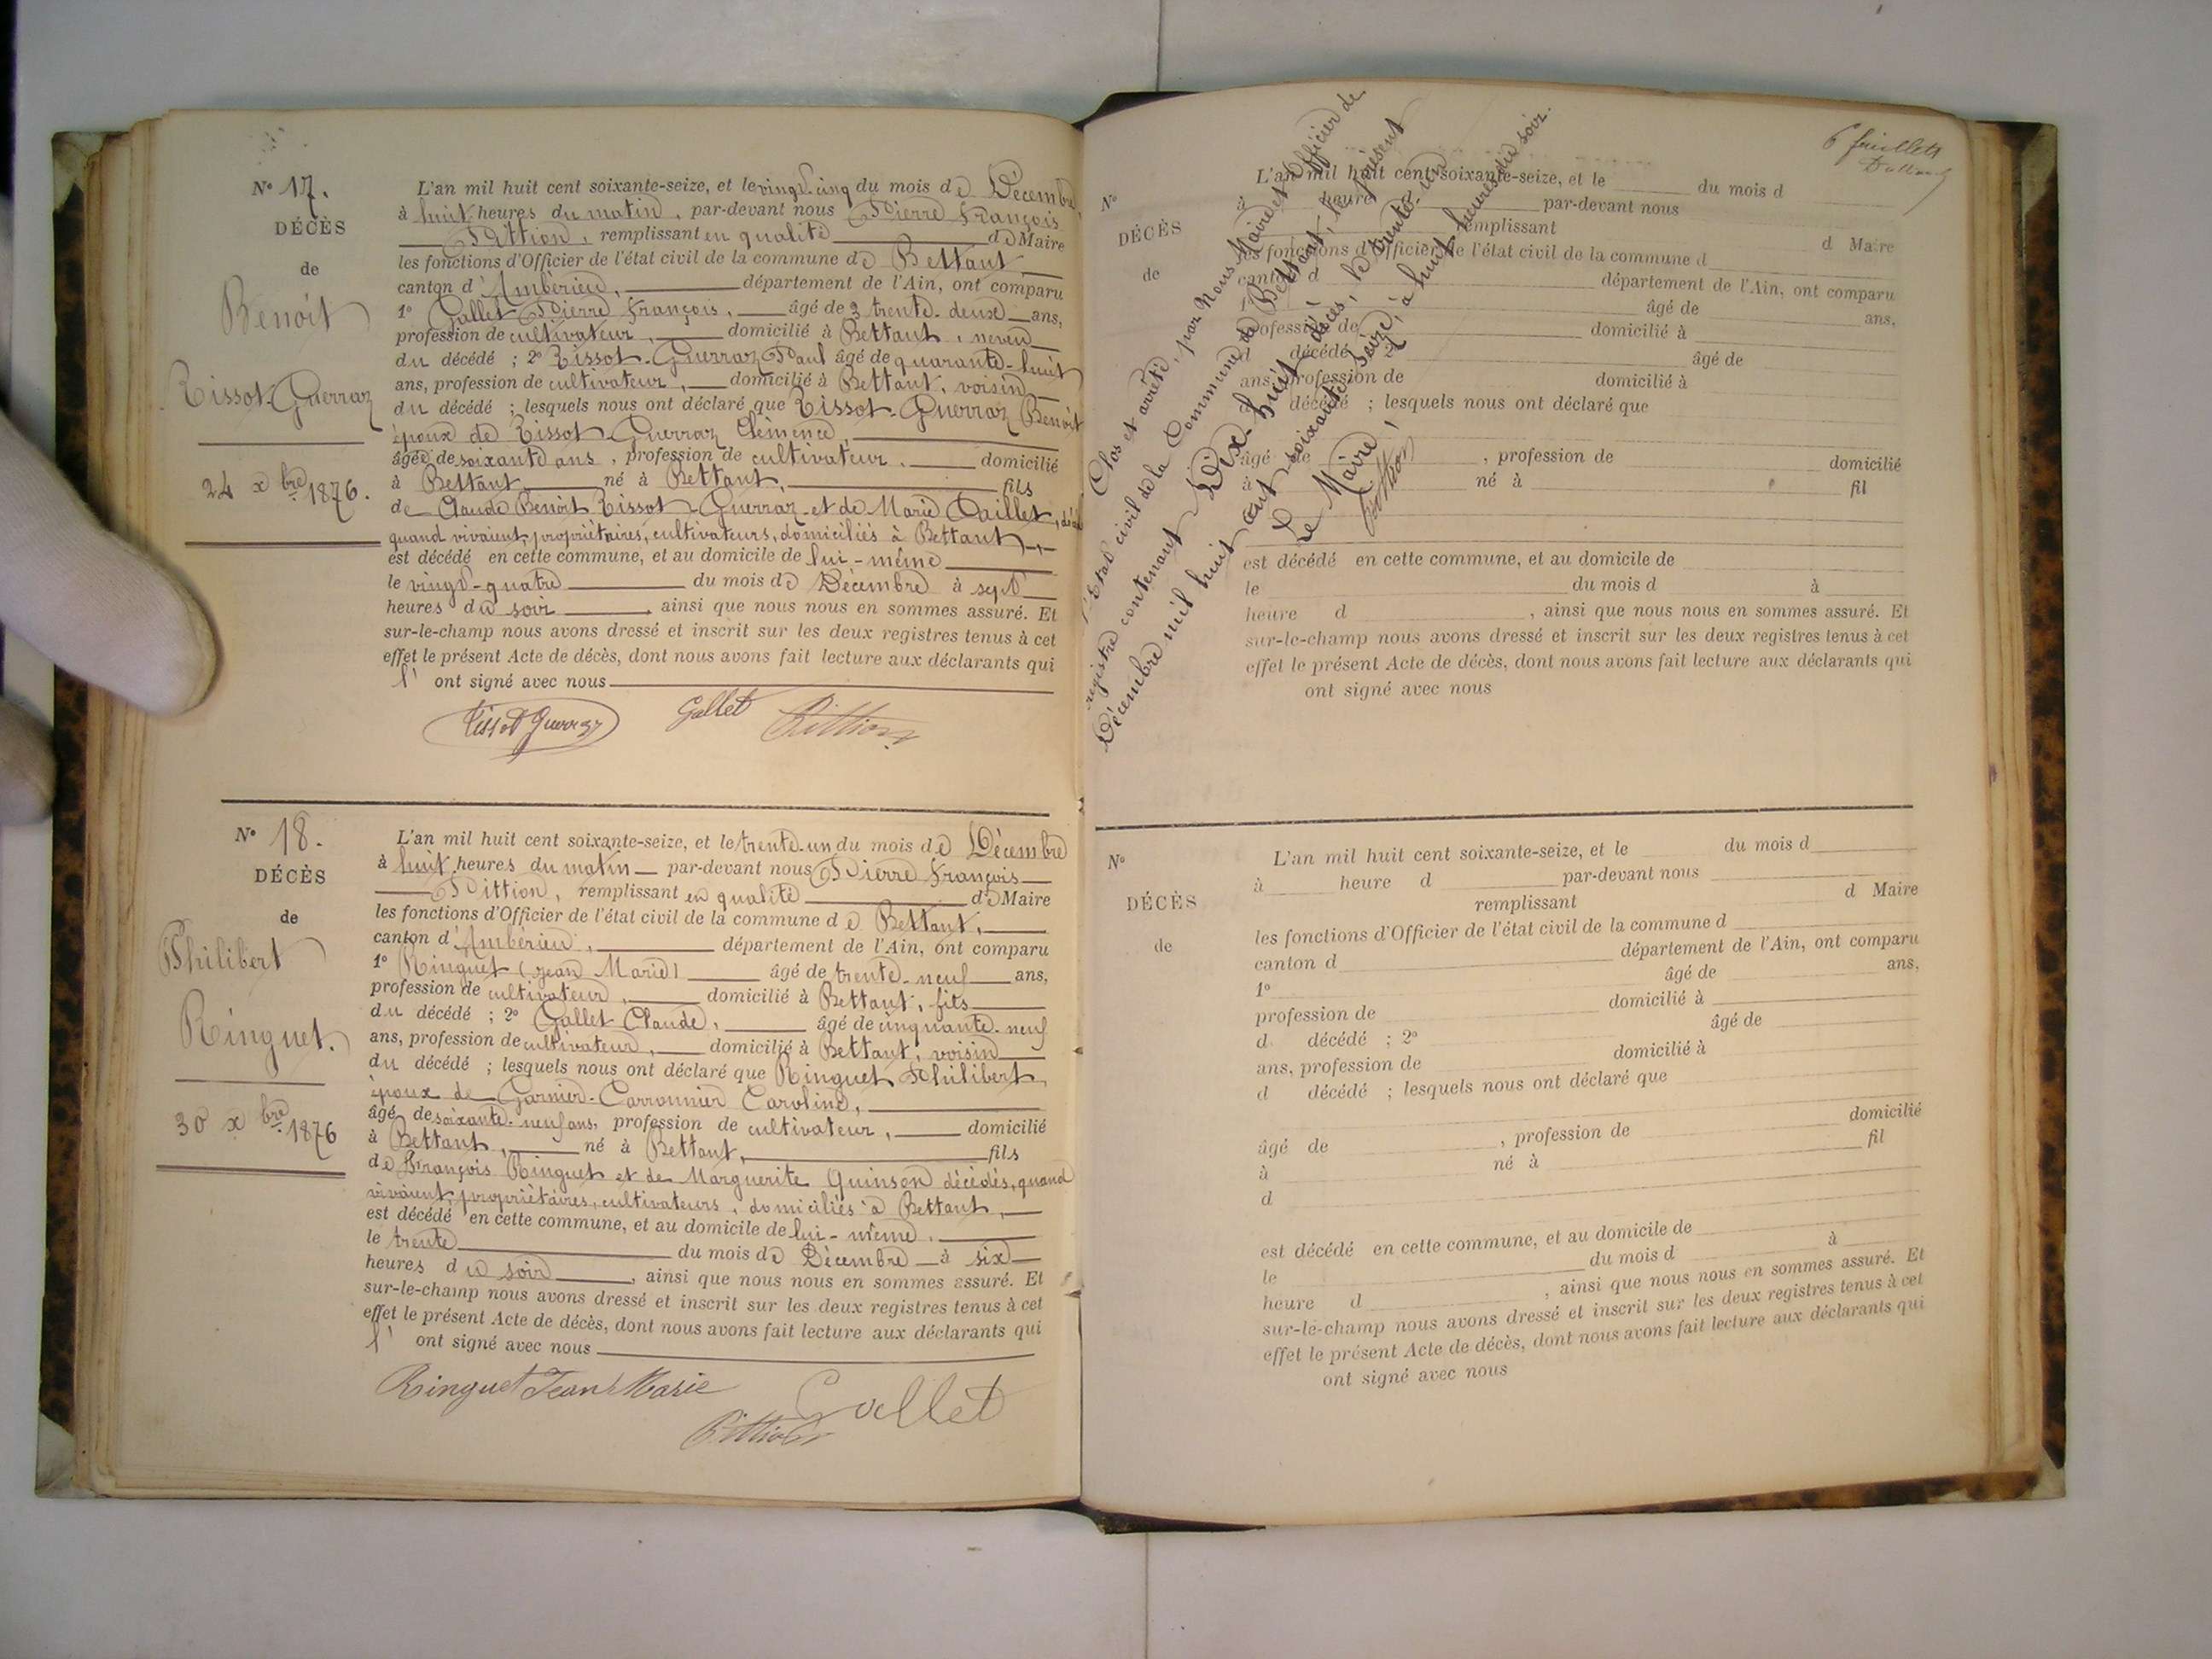 N° 17.
DÉCÈS
de
Benoit
Tissot-Guerraz
24 xbre 1876.
L'an mil huit cent soixante-seize, et le vingt-cinq du mois de Décembre,
à huit heures du matin, par-devant nous Pierre François
Pittion, remplissant en qualité de Maire
les fonctions d'Officier de l'état civil de la commune de Bettant,
canton d'Ambérieu, département de l'Ain, ont comparu
1° Gallet Pierre François, âgé de trente-deux ans,
profession de cultivateur, domicilié à Bettant, neveu
du décédé ; 2° Tissot-Guerraz Paul âgé de quarante-huit
ans, profession de cultivateur, domicilié à Bettant, voisin
du décédé ; lesquels nous ont déclaré que Tissot-Guerraz Benoit
époux de Tissot-Guerraz Clémence,
âgé de soixante ans, profession de cultivateur, domicilié
à Bettant né à Bettant, fils
de Claude Benoit Tissot-Guerraz et de Marie Caillet,
quand vivaient, propriétaires, cultivateurs, domiciliés à Bettant,
est décédé en cette commune, et au domicile de lui-même
le vingt-quatre du mois de Décembre à sept
heures du soir, ainsi que nous nous en sommes assuré. Et
sur-le-champ nous avons dressé et inscrit sur les deux registres tenus à cet
effet le présent Acte de décès, dont nous avons fait lecture aux déclarants qui
l' ont signé avec nous
Tissot Guerraz Gallet Pittion
N° 18.
DÉCÈS
de
Philibert
Ringuet.
30 xbre 1876
L'an mil huit cent soixante-seize, et le trente-un du mois de Décembre
à huit heures du matin par-devant nous Pierre François
Pittion, remplissant en qualité de Maire
les fonctions d'Officier de l'état civil de la commune de Bettant,
canton d'Ambérieu, département de l'Ain, ont comparu
1° Ringuet (Jean Marie) âgé de trente-neuf ans,
profession de cultivateur, domicilié à Bettant, fils
du décédé ; 2° Gallet Claude, âgé de cinquante-neuf
ans, profession de cultivateur, domicilié à Bettant, voisin
du décédé ; lesquels nous ont déclaré que Ringuet Philibert,
époux de Garnier-Carronnier Caroline,
âgé de soixante-neuf ans, profession de cultivateur, domicilié
à Bettant, né à Bettant, fils
de François Ringuet et de Marguerite Quinson décédés, quand
vivaient, propriétaires, cultivateurs, domiciliés à Bettant,
est décédé en cette commune, et au domicile de lui-même,
le trente du mois de Décembre à six
heures du soir, ainsi que nous nous en sommes assuré. Et
sur-le-champ nous avons dressé et inscrit sur les deux registres tenus à cet
effet le présent Acte de décès, dont nous avons fait lecture aux déclarants qui
l' ont signé avec nous
Ringuet Jean Marie Gallet
Pittion
6 feuillets
Clos et arrêté, par Nous Maire et Officier de
l'Etat civil de la Commune de Bettant, le présent
registre contenant Dix-huit décès, le trente-un
Décembre mil huit cent soixante seize, à huit heures du soir.
Le Maire,
Pittion
N°
DÉCÈS
de
L'an mil huit cent soixante-seize, et le du mois d
à heure par-devant nous
remplissant d Maire
les fonctions d'Officier de l'état civil de la commune d
canton d département de l'Ain, ont comparu
âgé de ans,
profession de domicilié à
d décédé âgé de
ans, profession de domicilié à
décédé ; lesquels nous ont déclaré que
âgé de , profession de domicilié
à né à fil
est décédé en cette commune, et au domicile de
le du mois d à
heure d , ainsi que nous nous en sommes assuré. Et
sur-le-champ nous avons dressé et inscrit sur les deux registres tenus à cet
effet le présent Acte de décès, dont nous avons fait lecture aux déclarants qui
ont signé avec nous
N°
DÉCÈS
de
L'an mil huit cent soixante-seize, et le du mois d
à heure d par-devant nous
remplissant d Maire
les fonctions d'Officier de l'état civil de la commune d
canton d département de l'Ain, ont comparu
1° âgé de ans,
profession de domicilié à
d décédé ; 2° âgé de
ans, profession de domicilié à
d décédé ; lesquels nous ont déclaré que
âgé de , profession de domicilié
à né à fil
d
est décédé en cette commune, et au domicile de
le du mois d à
heure d , ainsi que nous nous en sommes assuré. Et
sur-le-champ nous avons dressé et inscrit sur les deux registres tenus à cet
effet le présent Acte de décès, dont nous avons fait lecture aux déclarants qui
ont signé avec nous